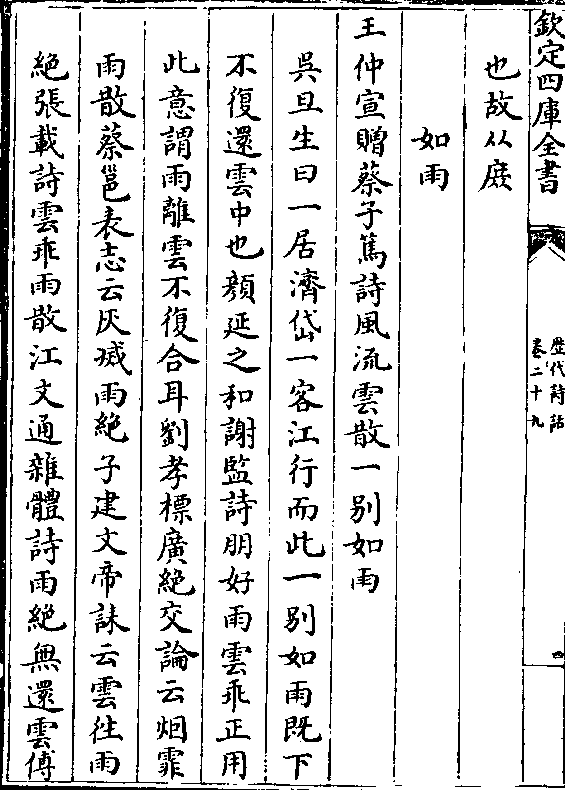 欽定四庫全書
歷代詩話
卷二十九
四
也故从庻
如雨
王仲宣贈蔡子篤詩風流雲散一别如雨
吳旦生曰一居濟岱一客江行而此一别如雨既下
不復還雲中也顔延之和謝監詩朋好雨雲乖正用
此意謂雨離雲不復合耳劉孝標廣絶交論云烟霏
雨散蔡邕表志云灰滅雨絶子建文帝誄云雲徃雨
絶張載詩雲乖雨散江文通雜體詩雨絶無還雲傅